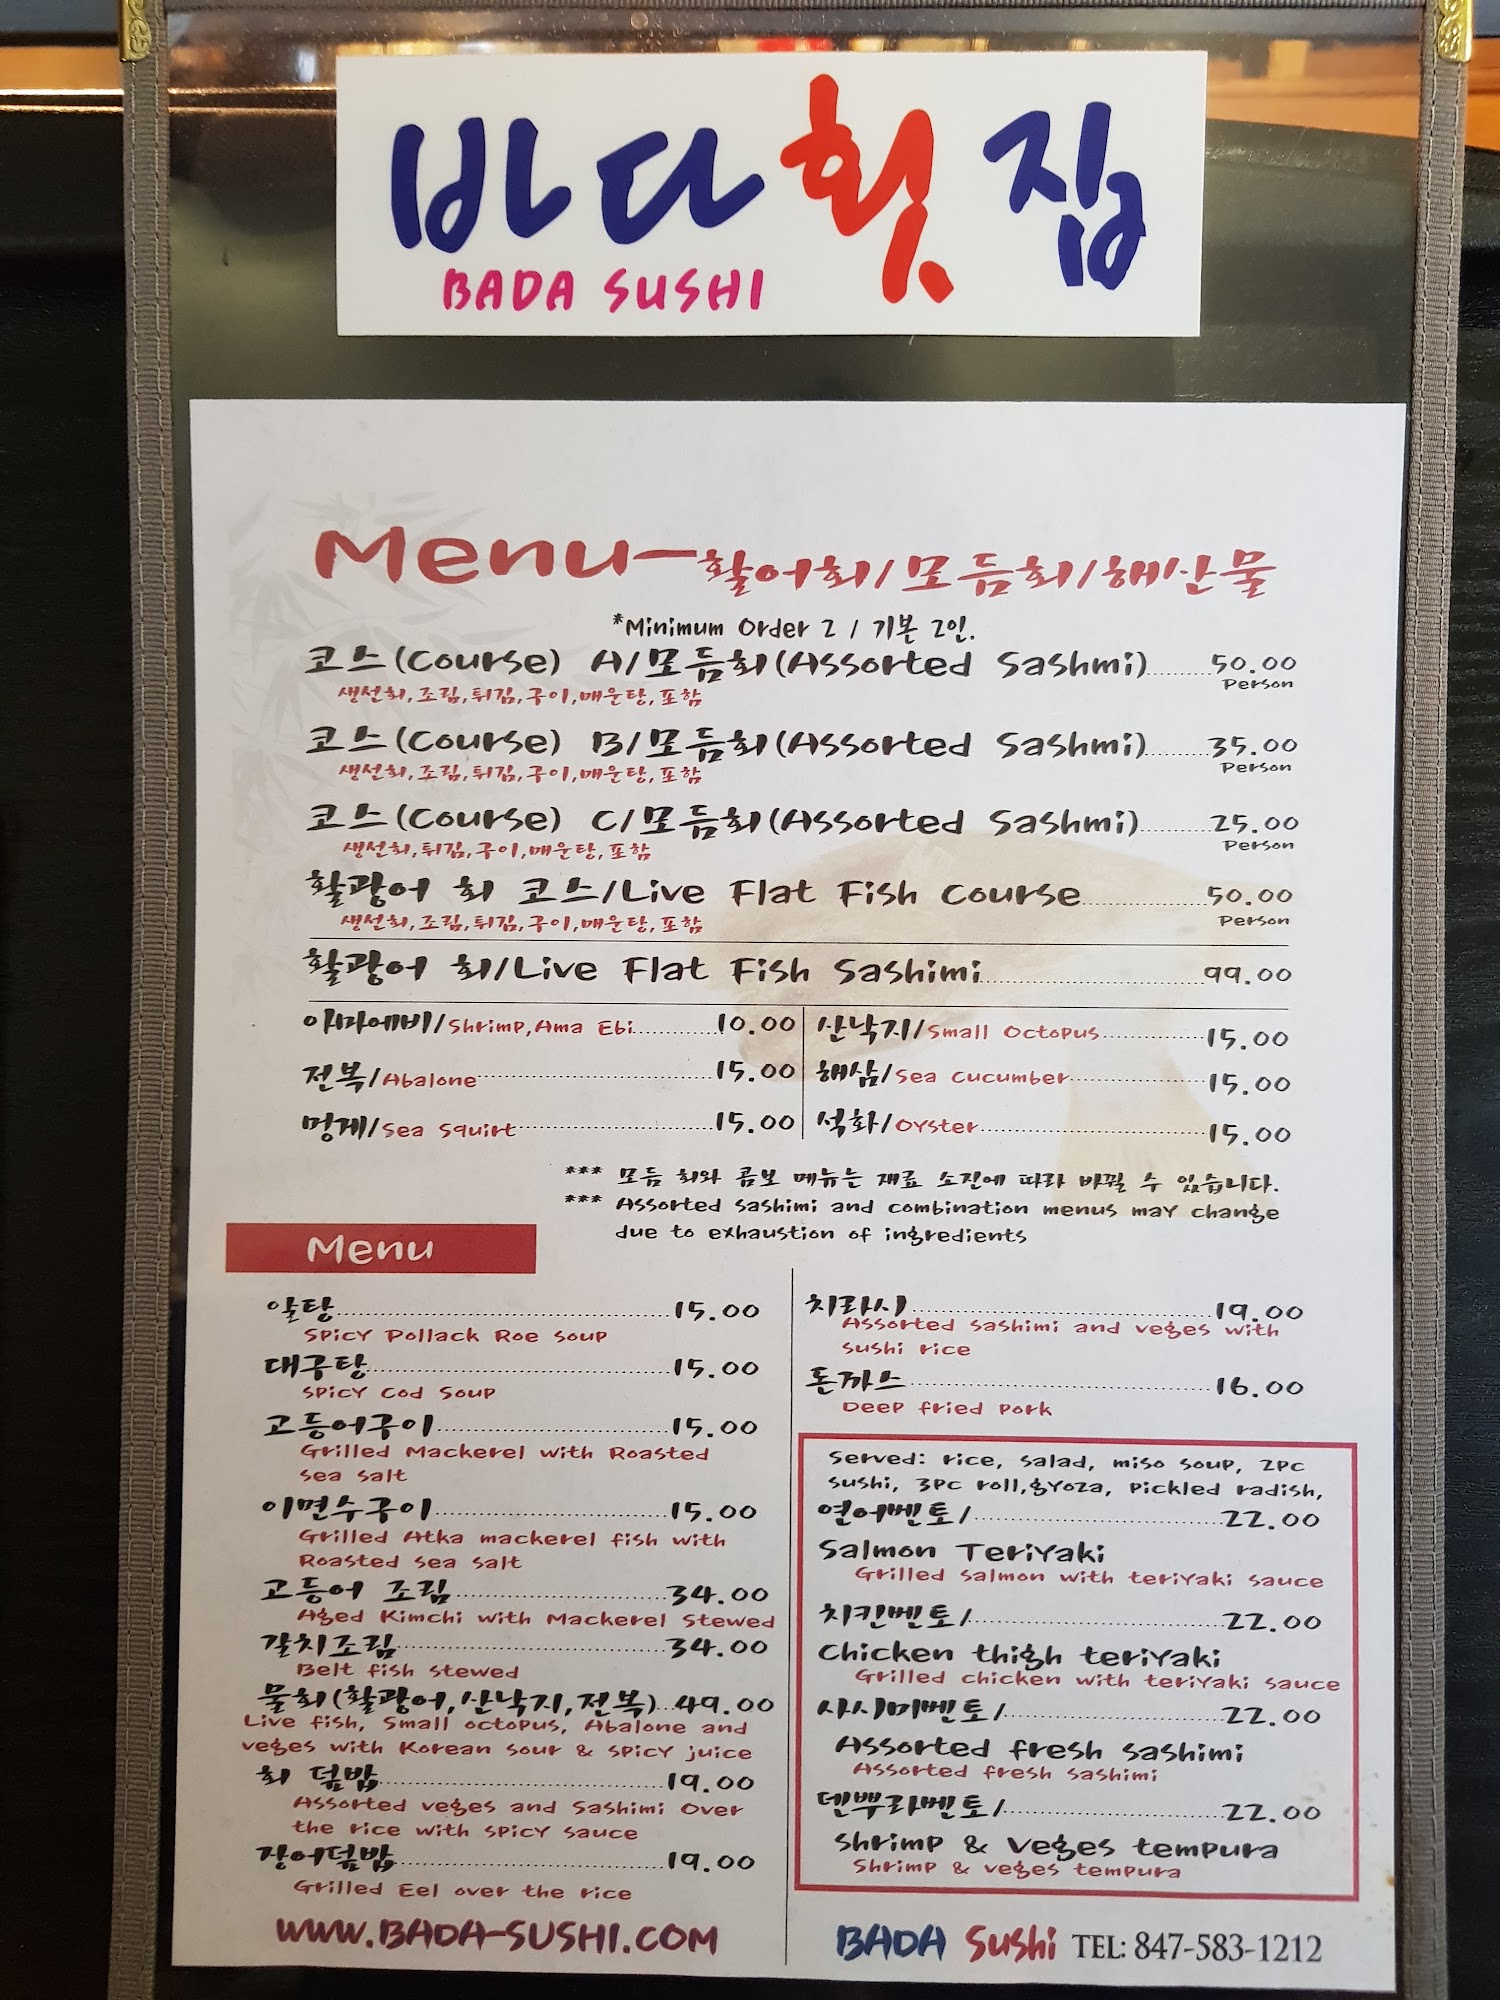 바다횟집
BADA SUSHI
Menu-활어회/모듬회/해산물
*Minimum Order 2 / 기본 2인.
코스(Course) A/모듬회(Assorted Sashmi) 50.00
Person
생선회,조림,튀김,구이,매운탕,포함
코스(Course) B/모듬회(Assorted Sashmi) 35.00
Person
생선회,조림,튀김,구이,매운탕,포함
코스(Course) C/모듬회(Assorted Sashmi) 25.00
Person
생선회,튀김,구이,매운탕,포함
활광어 회 코스/Live Flat Fish Course 50.00
Person
생선회,조림,튀김,구이,매운탕,포함
활광어 회/Live Flat Fish Sashimi 99.00
아마에비/Shrimp,Ama Ebi 10.00
전복/Abalone 15.00
멍게/Sea Squirt 15.00
산낙지/Small Octopus 15.00
해삼/Sea Cucumber 15.00
석화/Oyster 15.00
*** 모듬 회와 콤보 메뉴는 재료 소진에 따라 바뀔 수 있습니다.
*** Assorted sashimi and combination menus may change
due to exhaustion of ingredients
Menu
알탕 15.00
Spicy Pollack Roe soup
대구탕 15.00
Spicy Cod Soup
고등어구이 15.00
Grilled Mackerel with Roasted
sea salt
이면수구이 15.00
Grilled Atka mackerel fish with
Roasted sea salt
고등어 조림 34.00
Aged Kimchi with Mackerel Stewed
갈치조림 34.00
Belt fish stewed
물회(활광어,산낙지,전복) 49.00
Live fish, Small octopus, Abalone and
veges with Korean sour & spicy juice
회 덮밥 19.00
Assorted veges and Sashimi Over
the rice with spicy sauce
장어덮밥 19.00
Grilled Eel over the rice
WWW.BADA-SUSHI.COM
치라시 19.00
Assorted sashimi and veges with
sushi rice
돈까스 16.00
Deep fried pork
Served: rice, salad, miso soup, 2pc
sushi, 3pc roll,gyoza, pickled radish,
연어벤토/ 22.00
Salmon Teriyaki
Grilled salmon with teriyaki sauce
치킨벤토/ 22.00
Chicken thigh teriyaki
Grilled chicken with teriyaki sauce
사시미벤토/ 22.00
Assorted fresh sashimi
Assorted fresh sashimi
덴뿌라벤토/ 22.00
Shrimp & Veges tempura
Shrimp & veges tempura
BADA Sushi TEL: 847-583-1212